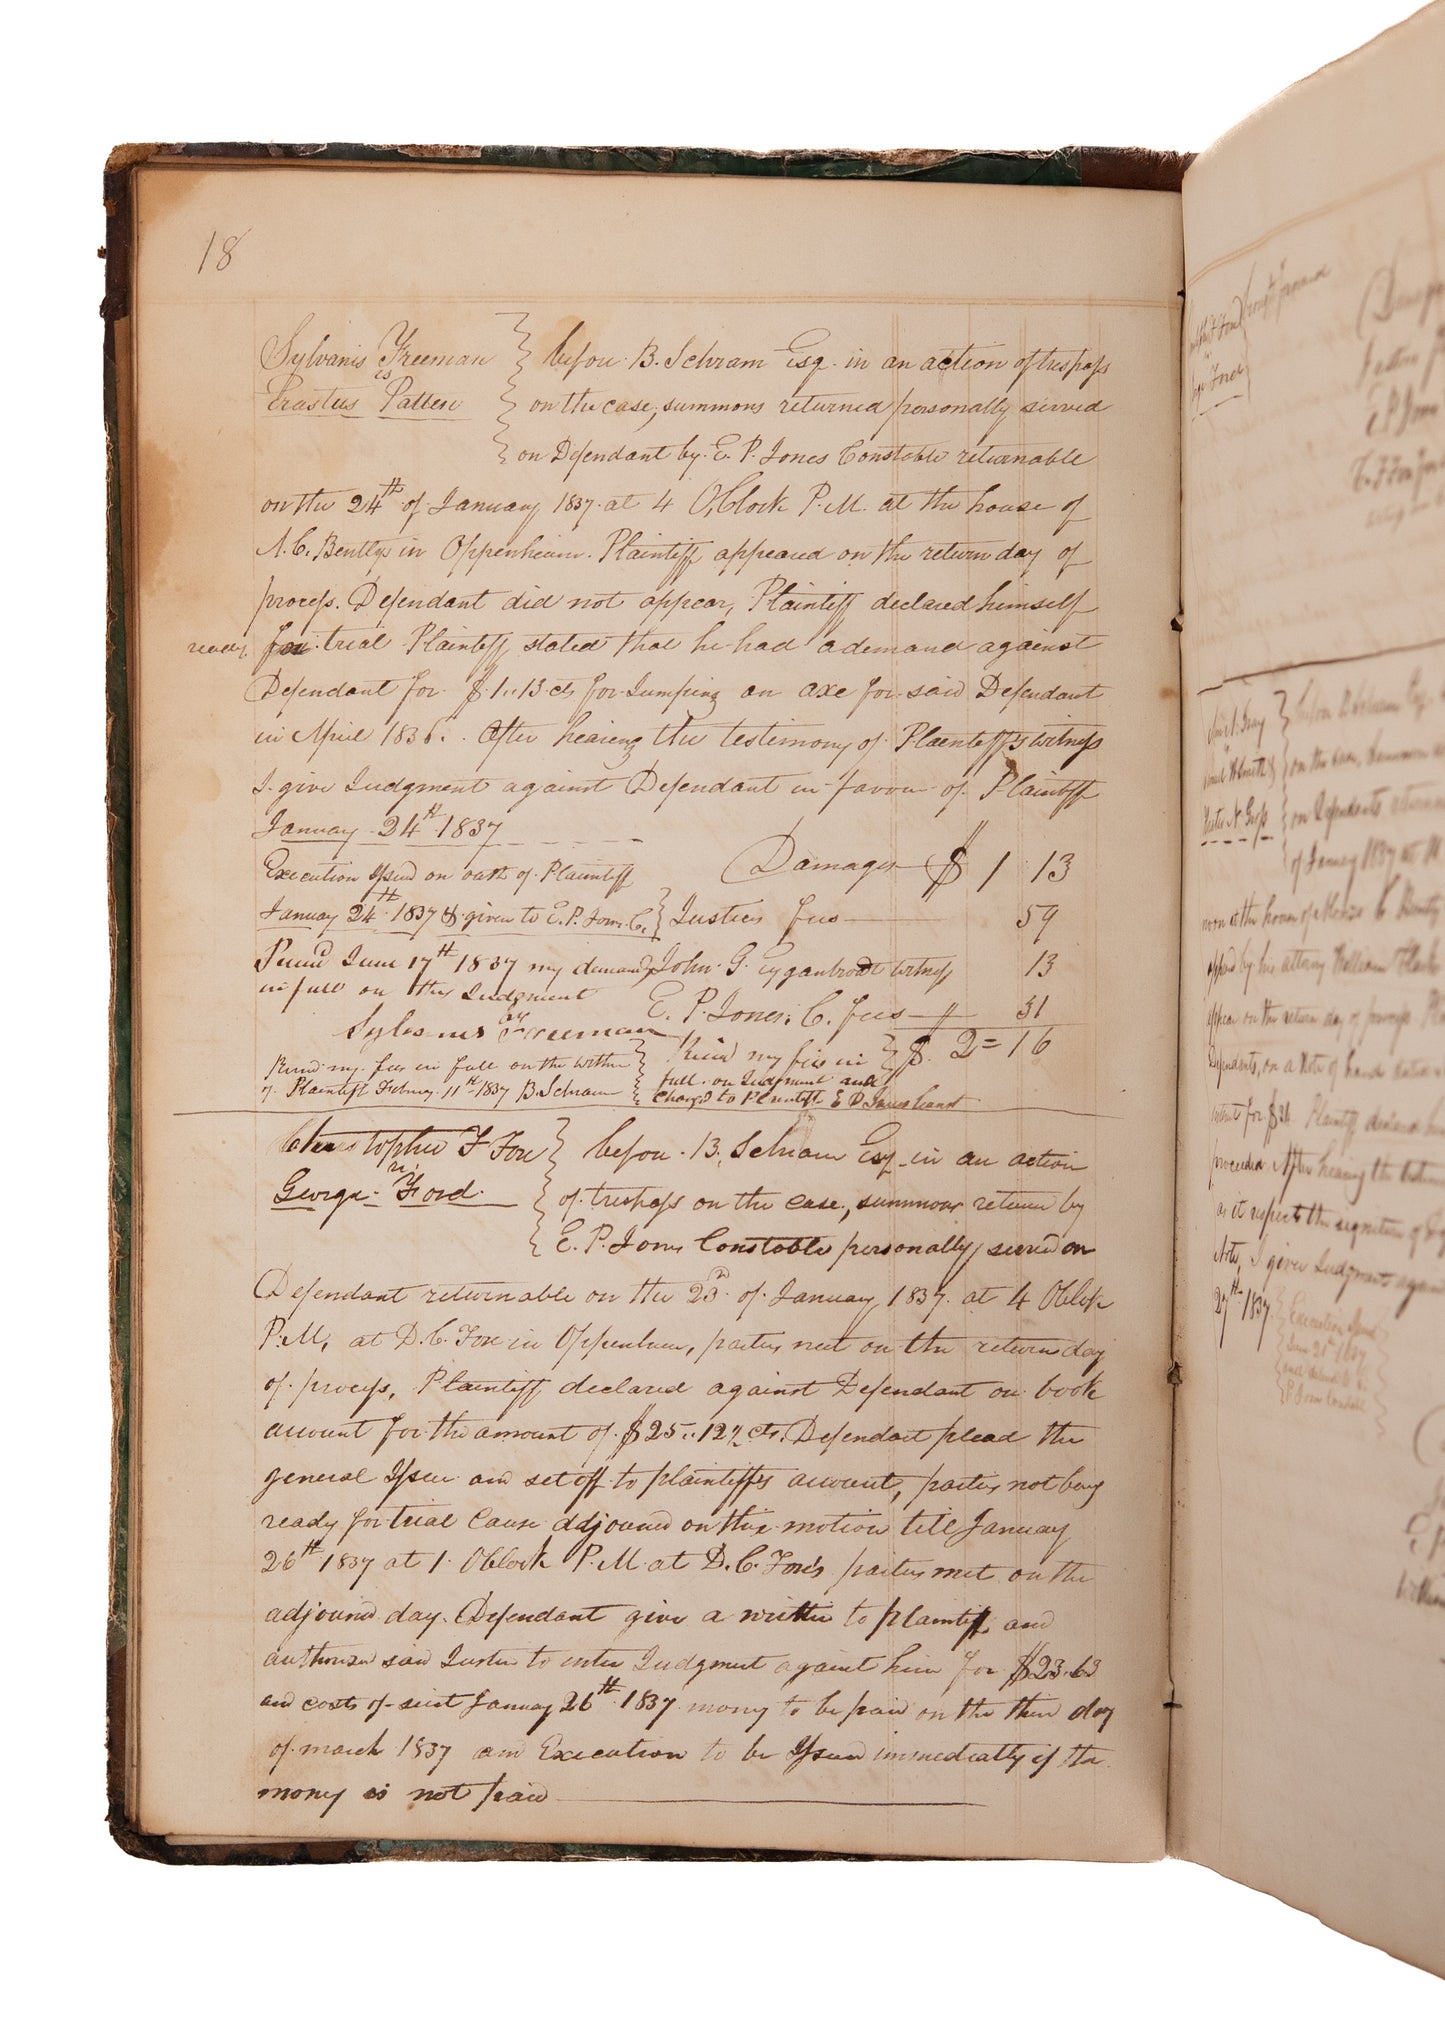 18
Sylvanis Freeman
vs
Erastus Patten
before B. Schram Esq. in an action of trespass
on the case, summons returned personally served
on Defendant by E. P. Jones Constable returnable
on the 24th of January 1837 at 4 O,Clock P.M. at the house of
in Oppenheim. Plaintiff appeared on the return day of
process. Defendant did not appear, Plaintiff declared himself
ready for trial Plaintiff stated that he had a demand against
Defendant for $1..13 cts for Jumping an axe for said Defendant
in April 1836. After hearing the testimony of Plaintiff's witness
I give Judgment against Defendant in favour of Plaintiff
January 24th 1837
Damages $ 1 13
Execution Issued on oath of Plaintiff
January 24th 1837 & given to E. P. Jones C.
Justices fees 59
June 17th 1837 my demand
in full on this Judgment
John G. witness 13
E. P. Jones, C. fees 31
Sylvanus Freeman
$ 2=16
my fees in full on the within
of Plaintiff 11th 1837 B. Schram
my fees in
full on Judgment and
Charged to Plaintiff E P Jones Const
Christopher F Fox
vs
George Ford
before B. Schram Esq in an action
of trespass on the case, summons return by
E. P. Jones Constable personally served on
Defendant returnable on the 23 of January 1837 at 4 Oclock
P.M, at D. C. Fox in Oppenheim, parties met on the return day
of process, Plaintiff declared against Defendant on book
account for the amount of $25..12½ cts. Defendant plead the
general Issue and set off to plaintiff's account, parties not being
ready for trial Cause adjourned on motion till January
26th 1837 at 1 Oclock P.M at D. C. Fox's parties met on the
adjourned day. Defendant give a to plaintiff and
said Justice to enter Judgment against him for $23.63
and costs of suit January 26th 1837 money to be paid on the day
of march 1837 and Execution to be Issued immediatly if the
money is not paid
brought forward
before B Schram Esq
on the case, Summons
on Defendants
of January 1837 at
noon at the house of
by his attorney William
appear on the return day of process
Defendants, on a Note of hand
for $26 Plaintiff
proceeded After hearing the
as it respects the signature of
Note, I given Judgment against
27th 1837
Execution Issued